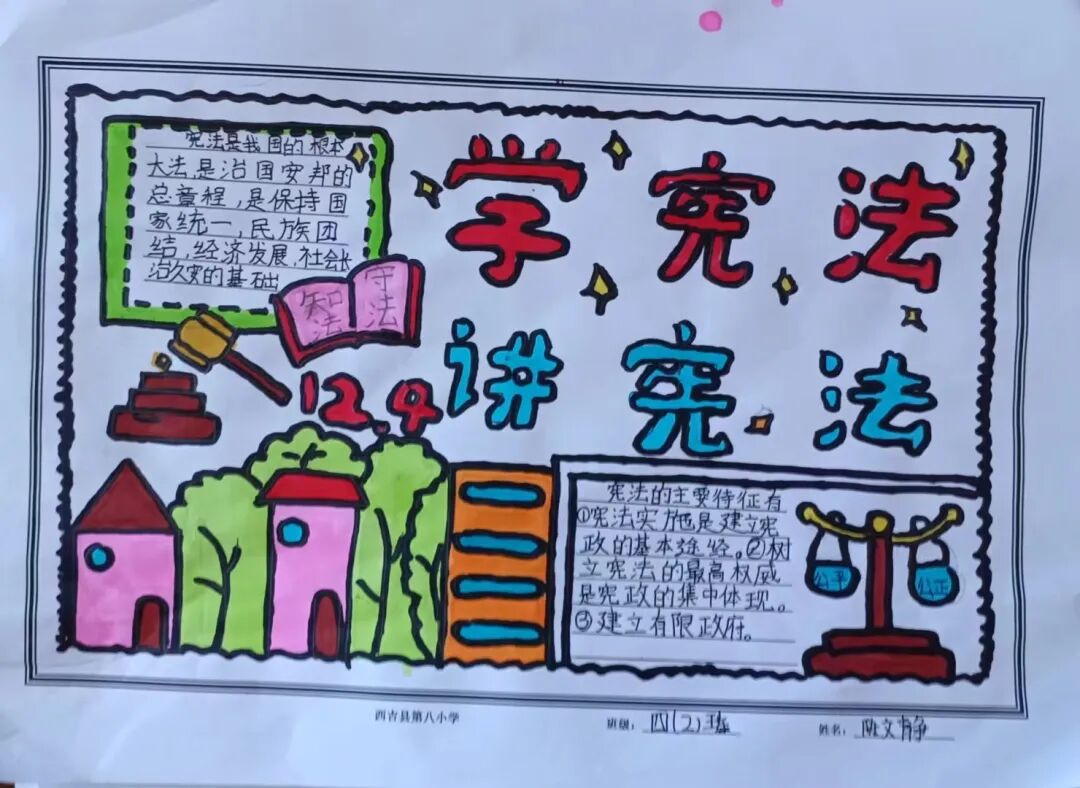 宪法是我国的根本
大法,是治国安邦的
总章程,是保持国
家统一,民族团
结,经济发展,社会长
治久安的基础
学宪法
知法
守法
12.4
讲宪法
宪法的主要特征有
①宪法实施是建立宪
政的基本途经。②树
立宪法的最高权威
是宪政的集中体现。
③建立有限政府。
公平
公正
西吉县第八小学
班级:四(2)班
姓名:陈文静